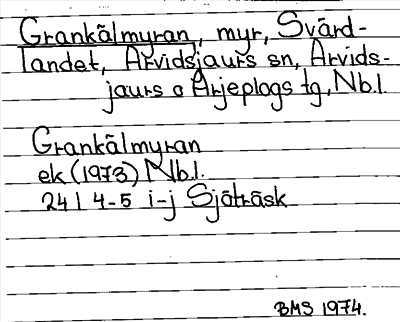 Grankålmyran, myr, Svärd-
landet, Arvidsjaurs sn, Arvids-
jaurs o Arjeplogs tg, Nb.l.
Grankålmyran
ek (1973) Nb.l.
24 I 4-5 i-j Sjöträsk
BMS 1974.